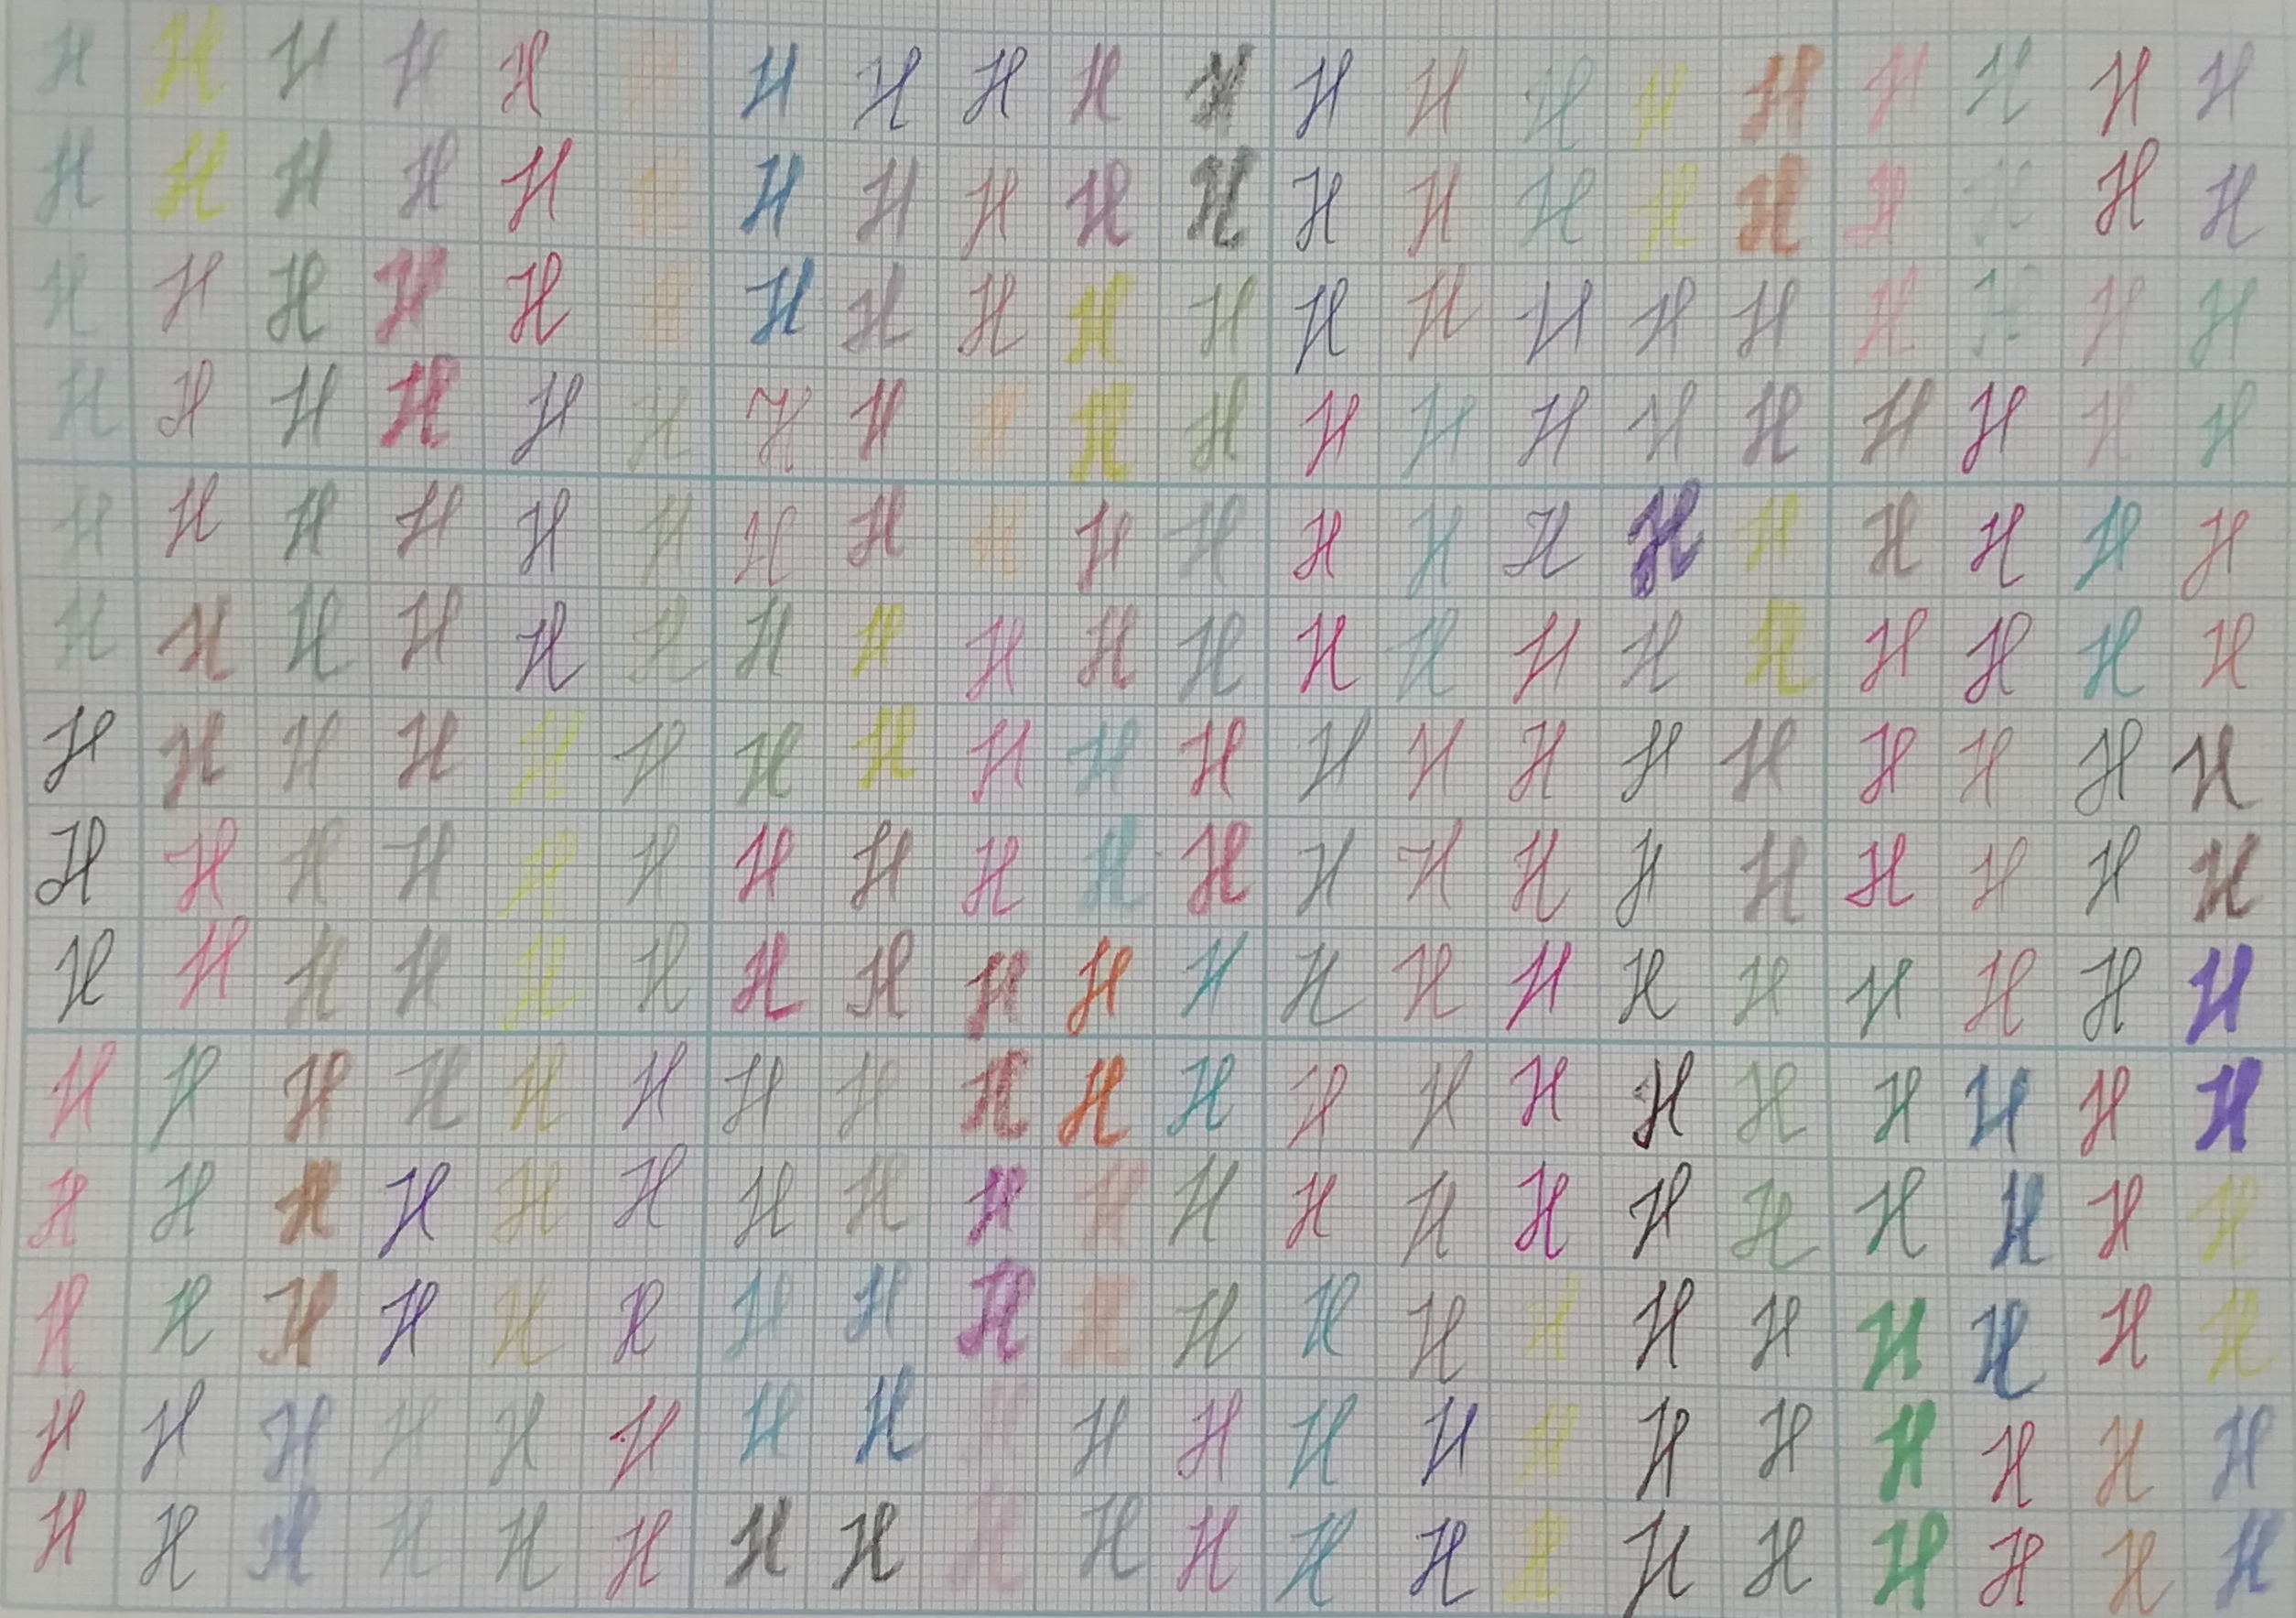 H H H H H H H H H H H H H H H H H H H H
H H H H H H H H H H H H H H H H H H H H
H H H H H H H H H H H H H H H H H H H H
H H H H H H H H H H H H H H H H H H H H
H H H H H H H H H H H H H H H H H H H H
H H H H H H H H H H H H H H H H H H H H
H H H H H H H H H H H H H H H H H H H H
H H H H H H H H H H H H H H H H H H H H
H H H H H H H H H H H H H H H H H H H H
H H H H H H H H H H H H H H H H H H H H
H H H H H H H H H H H H H H H H H H H H
H H H H H H H H H H H H H H H H H H H H
H H H H H H H H H H H H H H H H H H H H
H H H H H H H H H H H H H H H H H H H H